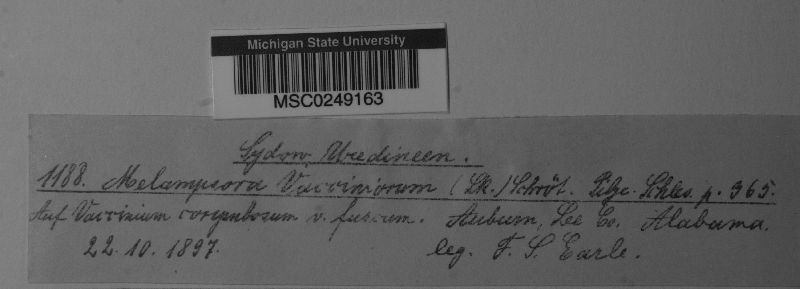 Michigan State University
MSC0249163
Sydow, Uredineen.
1188. Melampsora Vacciniorum (Lk.) Schröt. Pilze Schles. p. 365.
Auf Vaccinium corymbosum v. fuscum. Auburn, Lee Co. Alabama.
22. 10. 1897. leg. F. S. Earle.